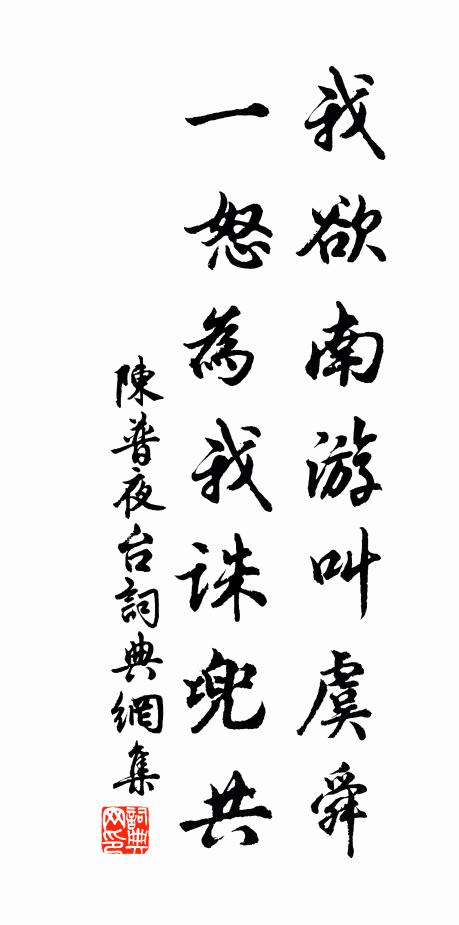 我欲南游叫虞舜
一怒為我誅兜共
陳普夜台詞典網集
詞典网印